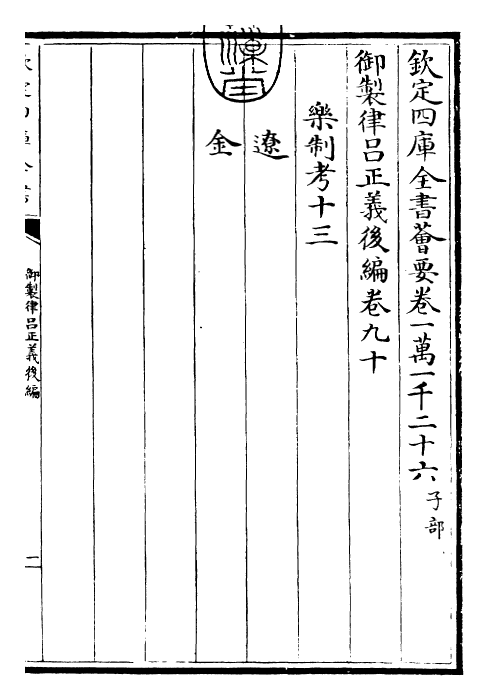 欽定四庫全書薈要卷一萬一千二十六子部
御製律呂正義後編卷九十
樂制考十三
遼
金
御製律呂正義後編